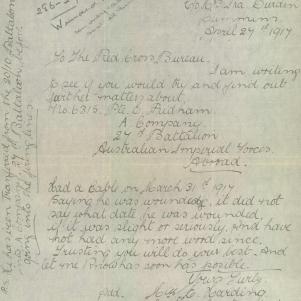 C/o Mrs Ira Durdin
April 27th 1917
To The Red Cross Bureau.
I am writing
to see if you would try and find out
further matters about,
No. 6315. Pte. E. Pridham.
A Company.
27th Battalion
Australian Imperial Forces.
Abroad.
Had a Cable on March 31st 1917
saying he was wounded, it did not
say what date he was wounded,
if it was slight or seriously, and have
not had any more word since.
Trusting you will do your best. And
let me know has soon has posible.
Yours Truly.
Harding
Wounded
P.S. he has been transfered from the 20/10 Battalion
into A Company 27th Battalion, before
going into the firing lines.